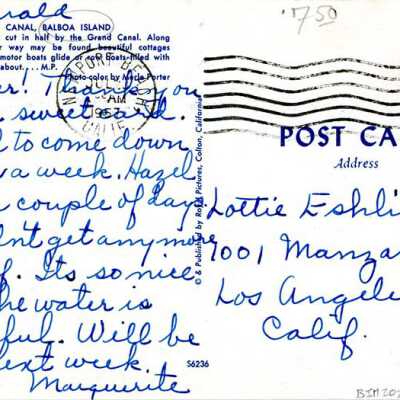 rald
CANAL, BALBOA ISLAND
cut in half by the Grand Canal. Along
way may be found beautiful cottages
motor boats glide or row boats filled with
about.... M.P.
Photo-color by Merle Porter
r! Thank you
sweet card.
d to come down
a week. Hazel
couple of day
n't get any more
f. Its so nice
the water is
ful. Will be
next week.
Marguerite
NEWPORT BEACH
AM
1957
CALIF.
© & Published by Royal Pictures, Colton, California
S6236
750
POST CA
Address
Lottie Eshli
7001 Manza
Los Angele
Calif.
BIM 202